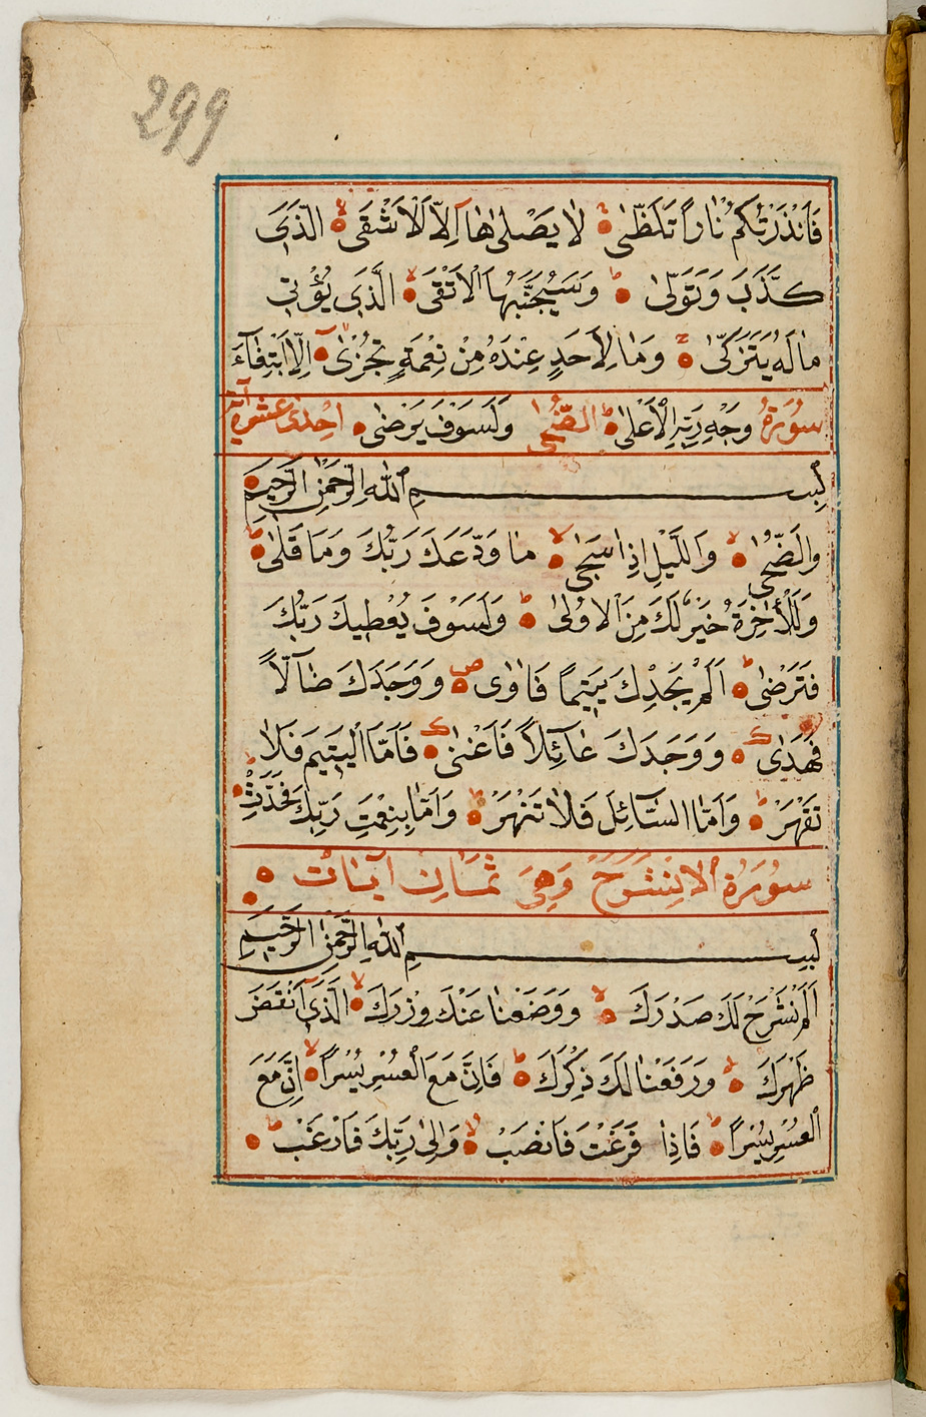 299
فَاَنْذَرْتُكُمْ نَارًا تَلَظّٰى لَا يَصْلٰيهَا اِلَّا الْاَشْقَى الَّذٖى
كَذَّبَ وَتَوَلّٰى وَسَيُجَنَّبُهَا الْاَتْقَى الَّذٖى يُؤْتٖى
مَالَهُ يَتَزَكّٰى وَمَا لِاَحَدٍ عِنْدَهُ مِنْ نِعْمَةٍ تُجْزٰى اِلَّا ابْتِغَٓاءَ
سُورَةُ وَجْهِ رَبِّهِ الْاَعْلٰى الضُّحٰى وَلَسَوْفَ يَرْضٰى اِحْدٰى عَشْرَةَ آيَة
بِسْمِ اللّٰهِ الرَّحْمٰنِ الرَّحٖيمِ
وَالضُّحٰى وَالَّيْلِ اِذَا سَجٰى مَا وَدَّعَكَ رَبُّكَ وَمَا قَلٰى
وَلَلْاٰخِرَةُ خَيْرٌ لَكَ مِنَ الْاُولٰى وَلَسَوْفَ يُعْطٖيكَ رَبُّكَ
فَتَرْضٰى اَلَمْ يَجِدْكَ يَتٖيمًا فَاٰوٰى وَوَجَدَكَ ضَٓالًّا
فَهَدٰى وَوَجَدَكَ عَٓائِلًا فَاَغْنٰى فَاَمَّا الْيَتٖيمَ فَلَا
تَقْهَرْ وَاَمَّا السَّٓائِلَ فَلَا تَنْهَرْ وَاَمَّا بِنِعْمَتِ رَبِّكَ فَحَدِّثْ
سُورَةُ الانشرح وَهِىَ ثَمَانِ آيَات
بِسْمِ اللّٰهِ الرَّحْمٰنِ الرَّحٖيمِ
اَلَمْ نَشْرَحْ لَكَ صَدْرَكَ وَوَضَعْنَا عَنْكَ وِزْرَكَ الَّذٖٓى اَنْقَضَ
ظَهْرَكَ وَرَفَعْنَا لَكَ ذِكْرَكَ فَاِنَّ مَعَ الْعُسْرِ يُسْرًا اِنَّ مَعَ
الْعُسْرِ يُسْرًا فَاِذَا فَرَغْتَ فَانْصَبْ وَاِلٰى رَبِّكَ فَارْغَبْ